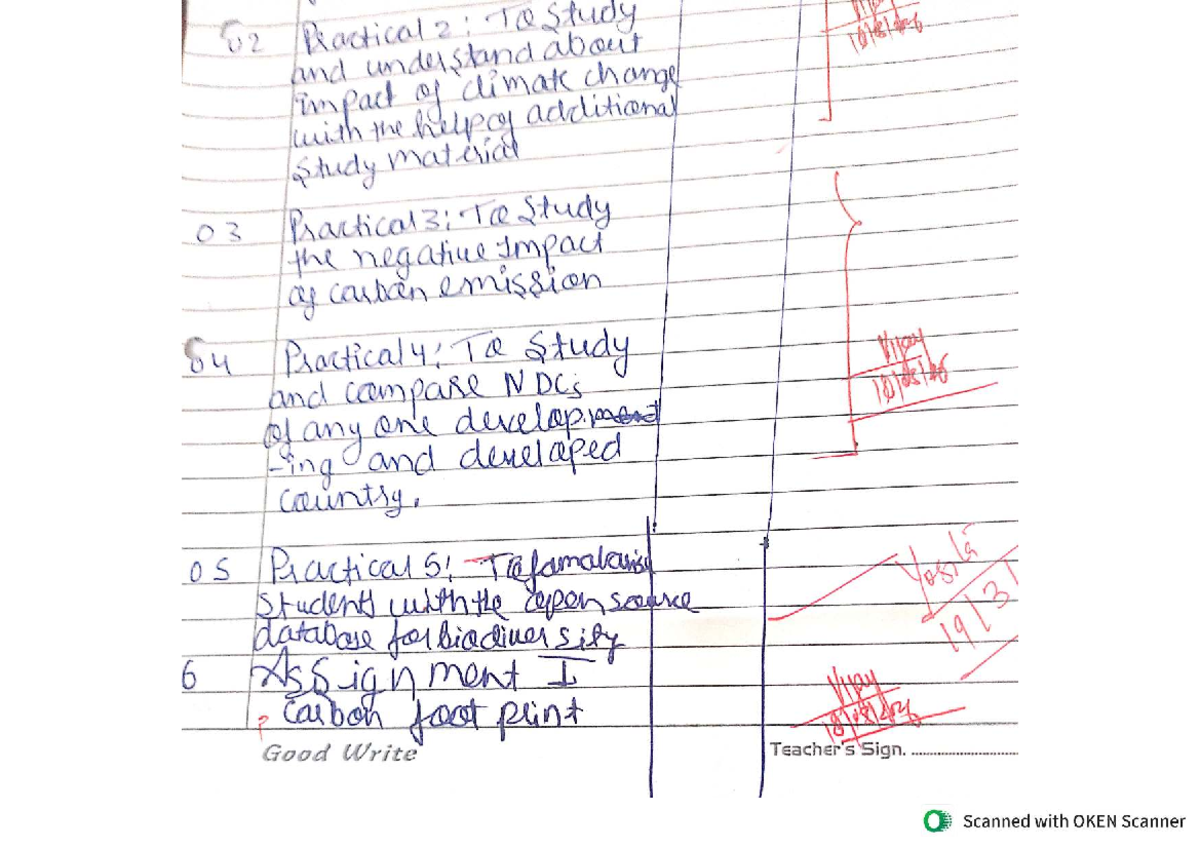 02 Practical 2 : To Study
and understand about
impact of climate change
with the help of additional
Study material
03 Practical 3 : To Study
the negative Impact
of carbon emission
04 Practical 4 : To Study
and compare NDCs
of any one develop.ment
-ing and developed
country.
Vijay
05 Practical 5 : To famalarise
Students with the open source
database for biodiversity
6 Assignment I
Carbon foot print
Vijay
Good Write
Teacher's Sign.
Scanned with OKEN Scanner